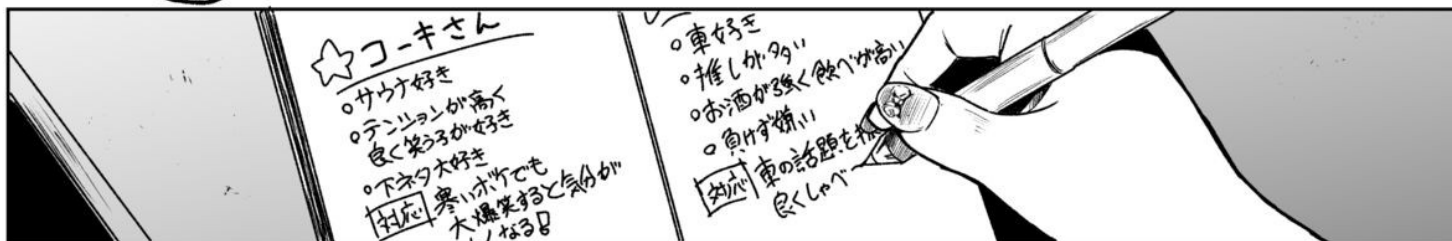 ☆コーキさん
○サウナ好き
○テンションが高く
良く笑う子が好き
○下ネタ大好き
対応 寒いボケでも
大爆笑すると気分が
なる!
○車好き
○推しが多い
○お酒が強く飲べが高い
○負けず嫌い
対応 車の話題を
良くしゃべ